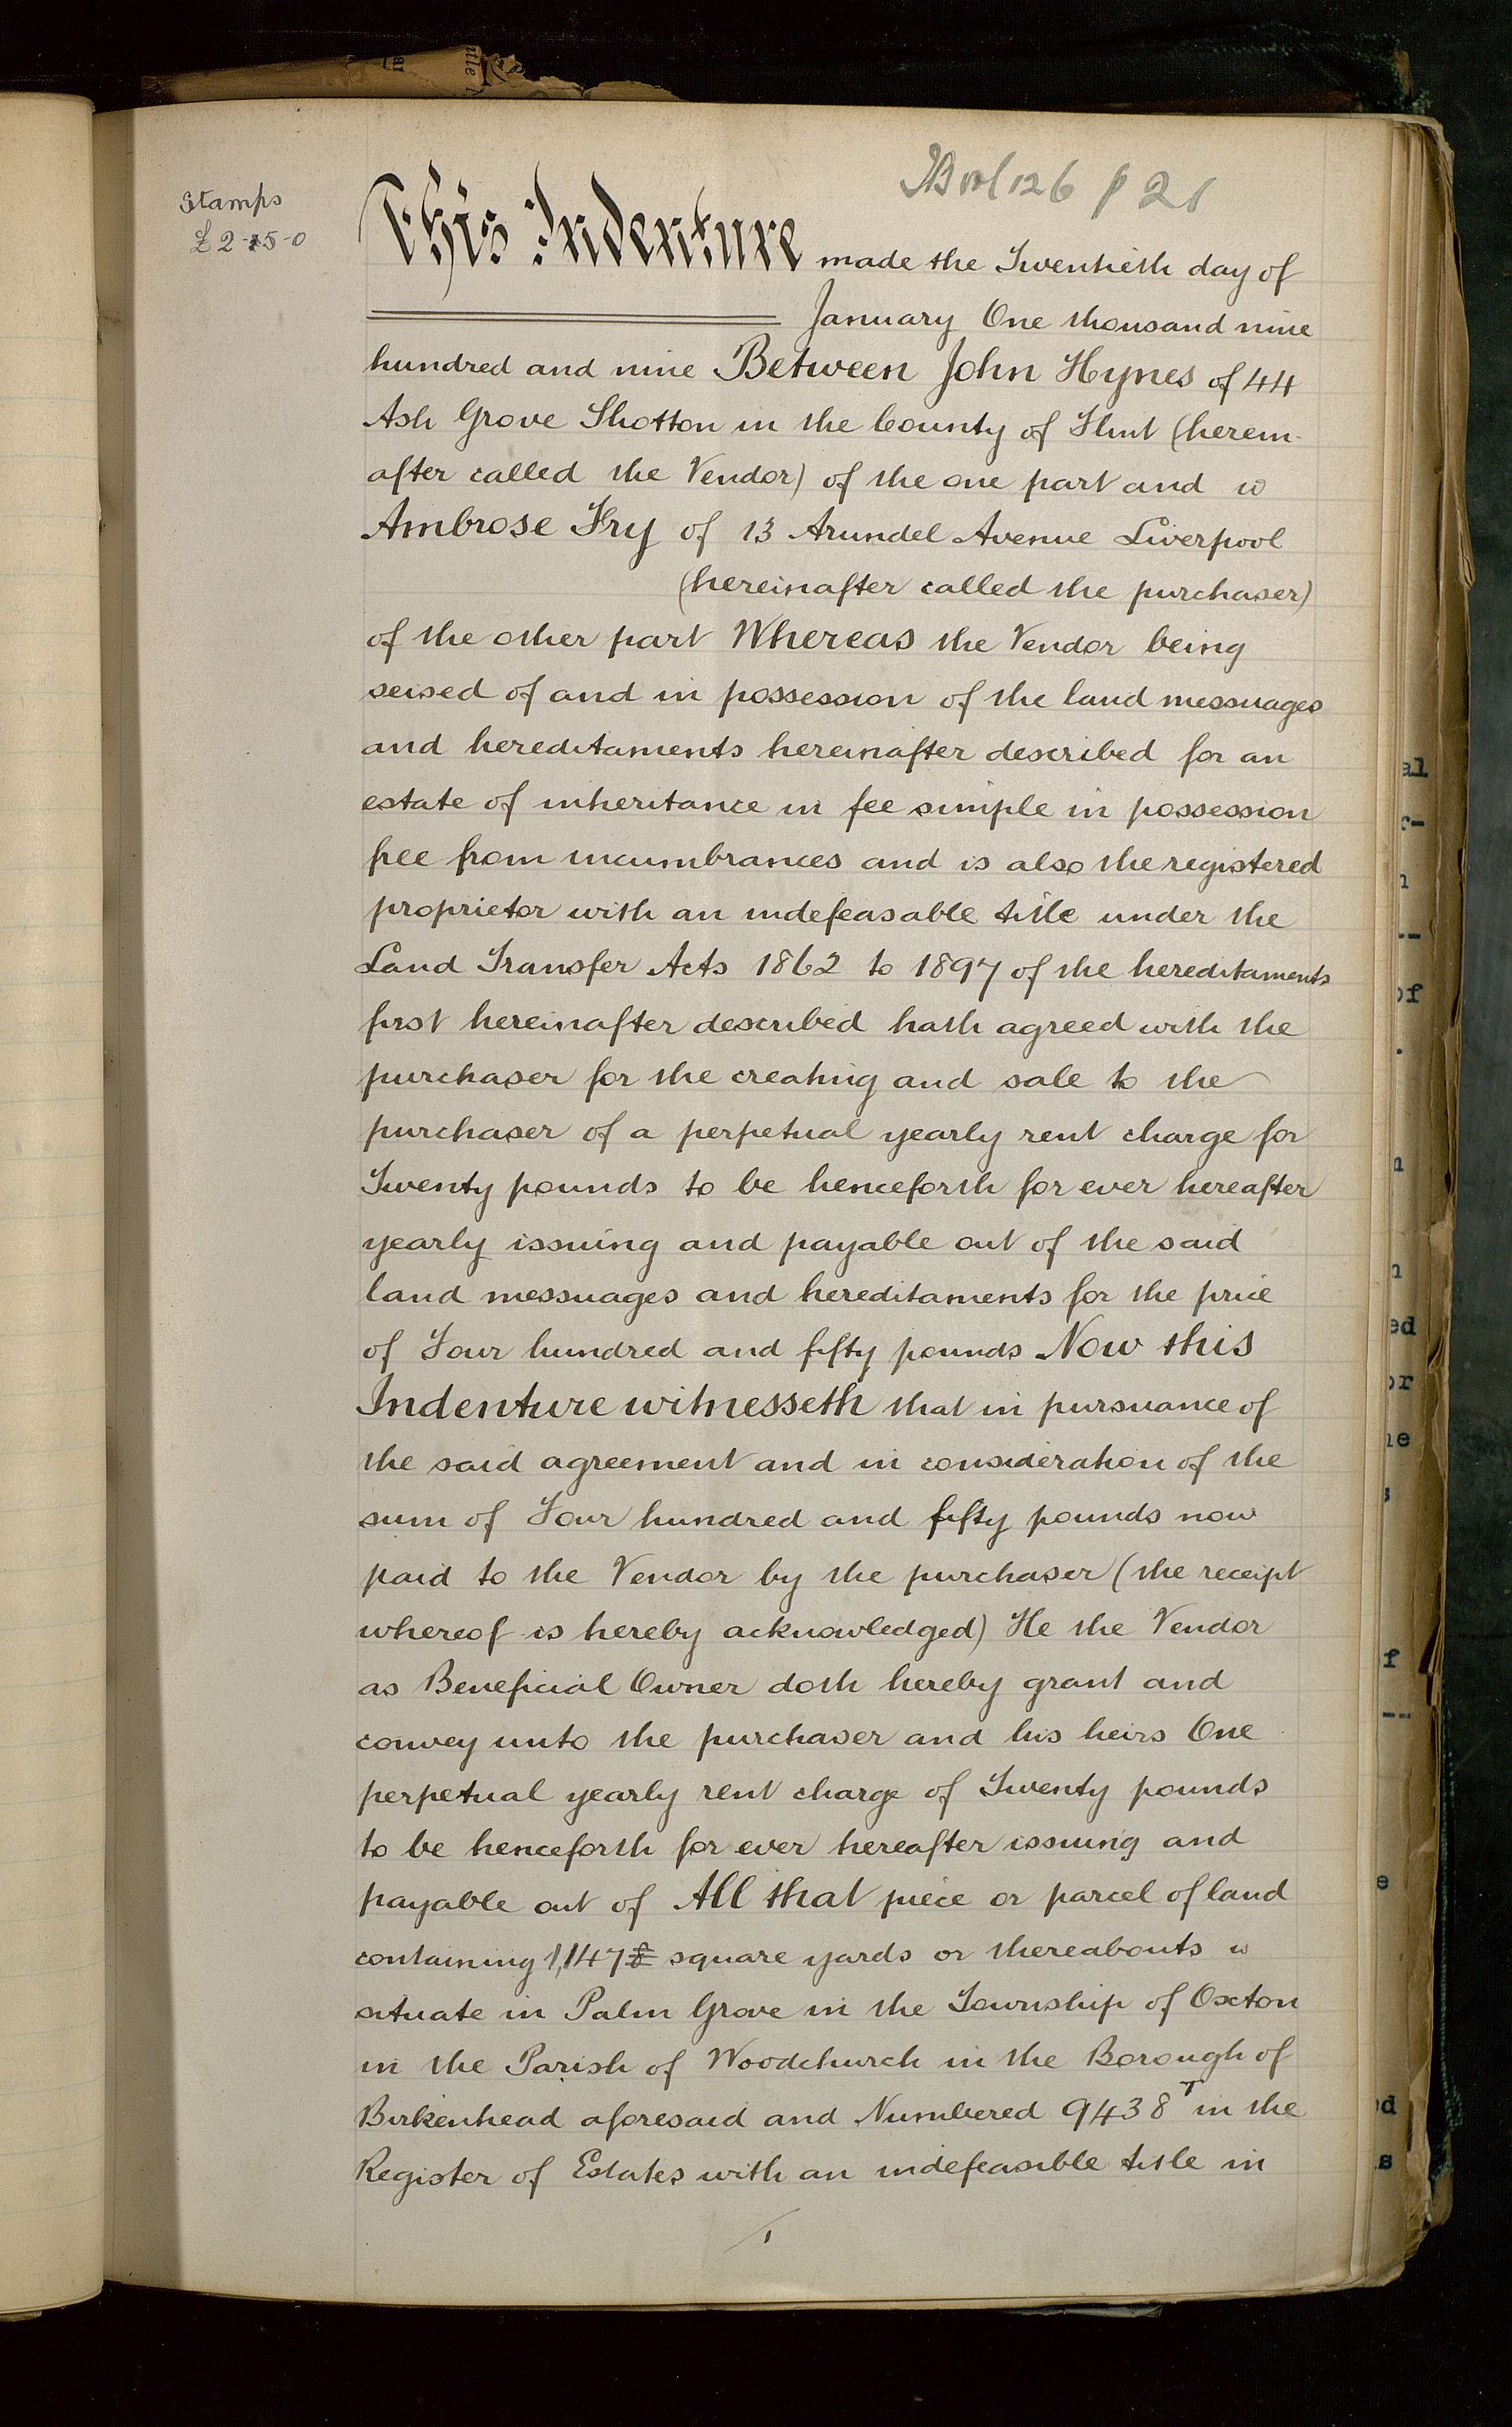 Stamps
£2-15-0
126 p 21
This Indenture made the Twentieth day of
January One thousand nine
hundred and nine Between John Hynes of 44
Ash Grove Shotton in the County of Flint (herein-
after called the Vendor) of the one part and
Ambrose Fry of 13 Arundel Avenue Liverpool
(hereinafter called the purchaser)
of the other part Whereas the Vendor being
seised of and in possession of the land messuages
and hereditaments hereinafter described for an
estate of inheritance in fee simple in possession
free from incumbrances and is also the registered
proprietor with an indefeasable title under the
Land Transfer Acts 1862 to 1897 of the hereditaments
first hereinafter described hath agreed with the
purchaser for the creating and sale to the
purchaser of a perpetual yearly rent charge for
Twenty pounds to be henceforth for ever hereafter
yearly issuing and payable out of the said
land messuages and hereditaments for the price
of Four hundred and fifty pounds Now this
Indenture witnesseth that in pursuance of
the said agreement and in consideration of the
sum of Four hundred and fifty pounds now
paid to the Vendor by the purchaser (the receipt
whereof is hereby acknowledged) He the Vendor
as Beneficial Owner doth hereby grant and
convey unto the purchaser and his heirs One
perpetual yearly rent charge of Twenty pounds
to be henceforth for ever hereafter issuing and
payable out of All that piece or parcel of land
containing 1,147 square yards or thereabouts
situate in Palm Grove in the Township of Oxton
in the Parish of Woodchurch in the Borough of
Birkenhead aforesaid and Numbered 9438T in the
Register of Estates with an indefeasible title in
1